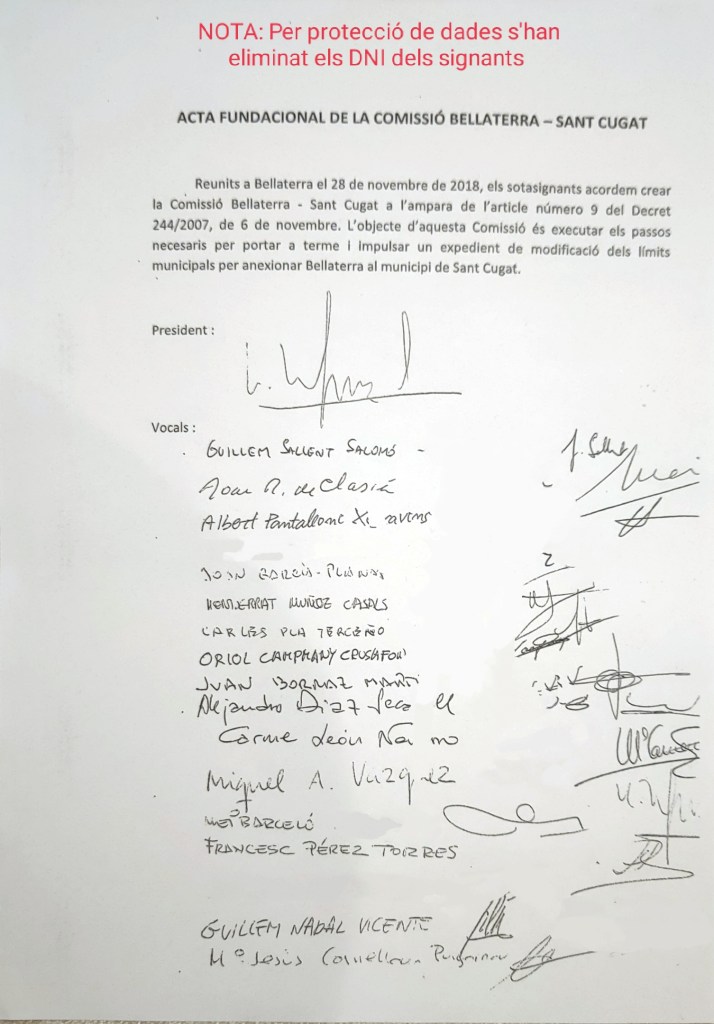 NOTA: Per protecció de dades s'han
eliminat els DNI dels signants
ACTA FUNDACIONAL DE LA COMISSIÓ BELLATERRA – SANT CUGAT
Reunits a Bellaterra el 28 de novembre de 2018, els sotasignants acordem crear
la Comissió Bellaterra - Sant Cugat a l'ampara de l'article número 9 del Decret
244/2007, de 6 de novembre. L'objecte d'aquesta Comissió és executar els passos
necesaris per portar a terme i impulsar un expedient de modificació dels límits
municipals per anexionar Bellaterra al municipi de Sant Cugat.
President :
Vocals :
GUILLEM SALLENT SALOMÓ
Joan R. de Clasià
Albert Pantallonc
JOAN GARCIA-PLANAS
MONTSERRAT MUÑOZ CASALS
CARLES PLA TERCEÑO
ORIOL CAMPMANY
JUAN BORNAZ
Alejandro Diaz
Carme León
Miquel A. Vazquez
BARCELÓ
FRANCESC PÉREZ TORRES
GUILLEM NADAL VICENTE
Mª Jesús